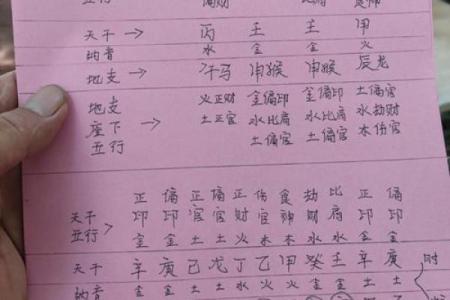 五行 偏财 比肩 食神
天干 → 丙 壬 壬 甲
纳音 水 金 金 火
地支 → 午马 申猴 申猴 辰龙
地支 火正财 金偏印 金偏印 土偏官
座下 → 土正官 水比肩 水比肩 水劫财
五行 土偏官 土偏官 木伤官
正 偏 正 偏 正 伤 食 劫 比 正 偏
天干 印 印 官 官 财 官 神 财 肩 印 印
五行→ 金 金 土 土 火 木 木 水 水 金 金
天干 辛 庚 己 戊 丁 乙 甲 癸 壬 辛 庚 时
纳音 土 土 火 火 水 火 火 金 金 土 土